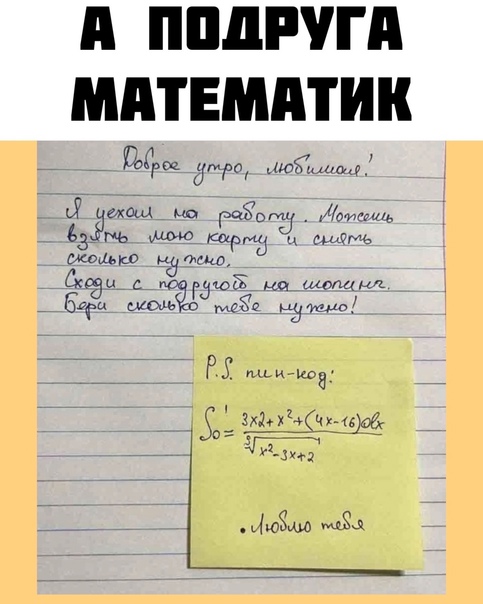 А ПОДРУГА
МАТЕМАТИК
Доброе утро, любимая!
Я уехал на работу. Можешь
взять мою карту и снять
сколько нужно.
Сходи с подругой на шопинг.
Бери сколько тебе нужно!
P.S. пин-код:
∫₀¹ = 3x2+x²+(4x-16)dx
∛x²-3x+2
• Люблю тебя